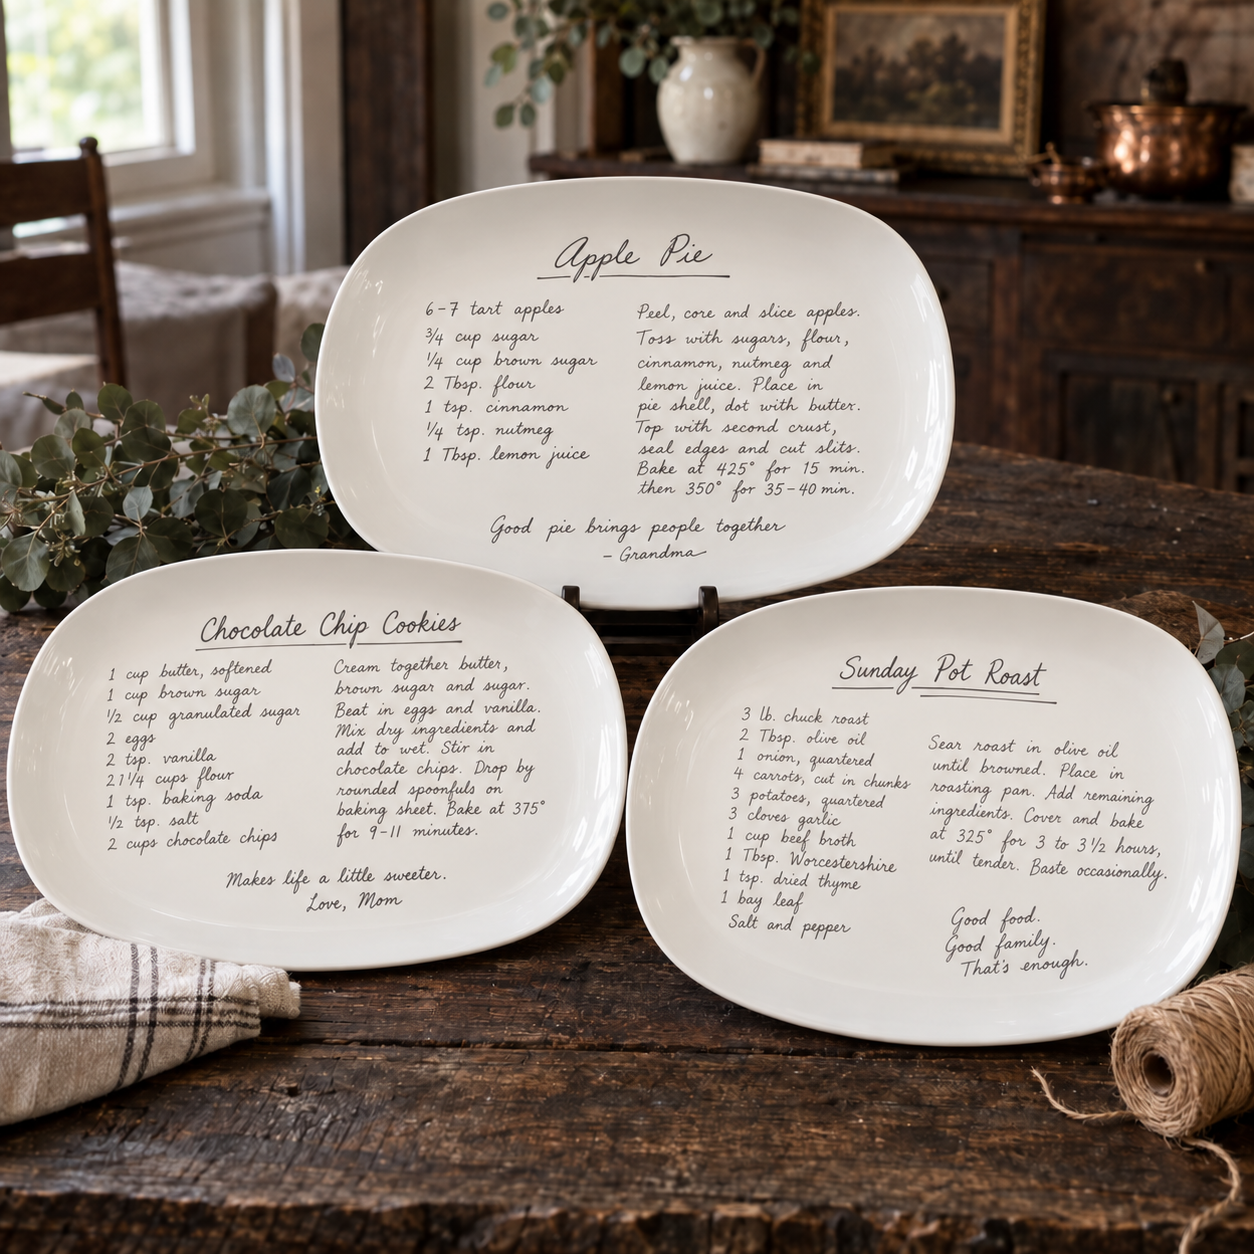 Apple Pie
6-7 tart apples
3/4 cup sugar
1/4 cup brown sugar
2 Tbsp. flour
1 tsp. cinnamon
1/4 tsp. nutmeg
1 Tbsp. lemon juice
Peel, core and slice apples.
Toss with sugars, flour,
cinnamon, nutmeg and
lemon juice. Place in
pie shell, dot with butter.
Top with second crust,
seal edges and cut slits.
Bake at 425° for 15 min.
then 350° for 35-40 min.
Good pie brings people together
- Grandma
Chocolate Chip Cookies
1 cup butter, softened
1 cup brown sugar
1/2 cup granulated sugar
2 eggs
2 tsp. vanilla
2 1 1/4 cups flour
1 tsp. baking soda
1/2 tsp. salt
2 cups chocolate chips
Cream together butter,
brown sugar and sugar.
Beat in eggs and vanilla.
Mix dry ingredients and
add to wet. Stir in
chocolate chips. Drop by
rounded spoonfuls on
baking sheet. Bake at 375°
for 9-11 minutes.
Makes life a little sweeter.
Love, Mom
Sunday Pot Roast
3 lb. chuck roast
2 Tbsp. olive oil
1 onion, quartered
4 carrots, cut in chunks
3 potatoes, quartered
3 cloves garlic
1 cup beef broth
1 Tbsp. Worcestershire
1 tsp. dried thyme
1 bay leaf
Salt and pepper
Sear roast in olive oil
until browned. Place in
roasting pan. Add remaining
ingredients. Cover and bake
at 325° for 3 to 3 1/2 hours,
until tender. Baste occasionally.
Good food.
Good family.
That's enough.